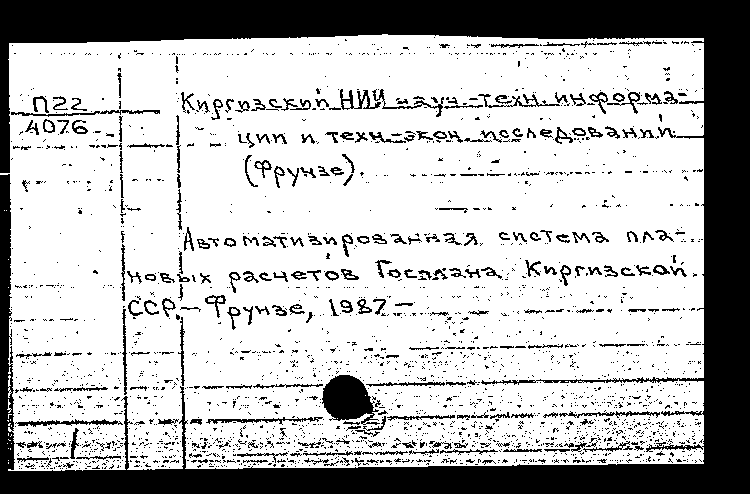 П22
4076
Киргизский НИИ науч.-техн. информа-
ции и техн.-экон. исследований
(Фрунзе).
Автоматизированная система пла-
новых расчетов Госплана Киргизской
ССР.- Фрунзе, 1987-